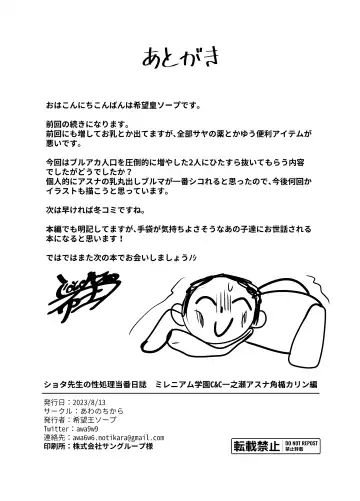 あとがき
おはこんにちこんばんは希望皇ソープです。
前回の続きになります。
前回にも増してお乳とか出てますが、全部サヤの薬とかゆう便利アイテムが
悪いです。
今回はブルアカ人口を圧倒的に増やした2人にひたすら抜いてもらう内容
でしたがどうでしたか？
個人的にアスナの乳丸出しブルマが一番シコれると思ったので、今後何回か
イラストも描こうと思っています。
次は早ければ冬コミですね。
本編でも明記してますが、手袋が気持ちよさそうなあの子達にお世話される
本になると思います！
ではではまた次の本でお会いしましょうﾉｼ
ショタ先生の性処理当番日誌　ミレニアム学園C&C一之瀬アスナ角楯カリン編
発行日：2023/8/13
サークル：あわのちから
発行者：希望王ソープ
Twitter：awa9w9
連絡先：awa6w6.notikara@gmail.com
印刷所：株式会社サングループ様
転載禁止
DO NOT REPOST
禁止转载